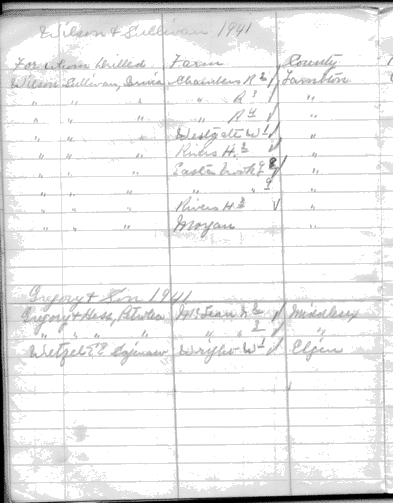 Wilson & Sullivan 1941
For Whom Drilled Farm County
Wilson Sullivan, Chambers R 2 Lambton
" " " " R 3 "
" " " " R 4 "
" " " Westgate W 1 "
" " " Rivers H. 2 "
" " " Eastabrook G 8 "
" " " " " 9 "
" " " Rivers H 3 "
" " " Morgan "
Gregory & Son 1941
Gregory & Hess, Petrolea McLean Middlesex
" " " " " " 2 "
Wetzel Saginaw W 1 Elgin